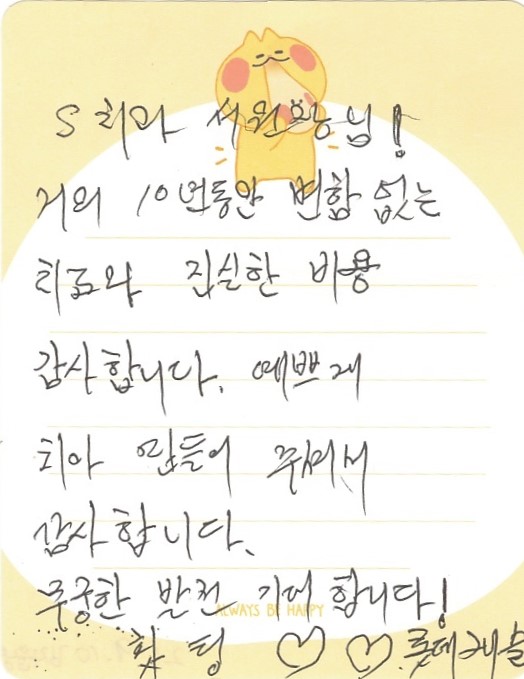 S치과 서원장님!
거의 10년동안 변함 없는
치료와 진실한 비용
감사합니다. 예쁘게
치아 만들어 주셔서
감사합니다.
무궁한 발전 기대 합니다!
ALWAYS BE HAPPY
홧팅 ♡ ♡ 롯데캐슬